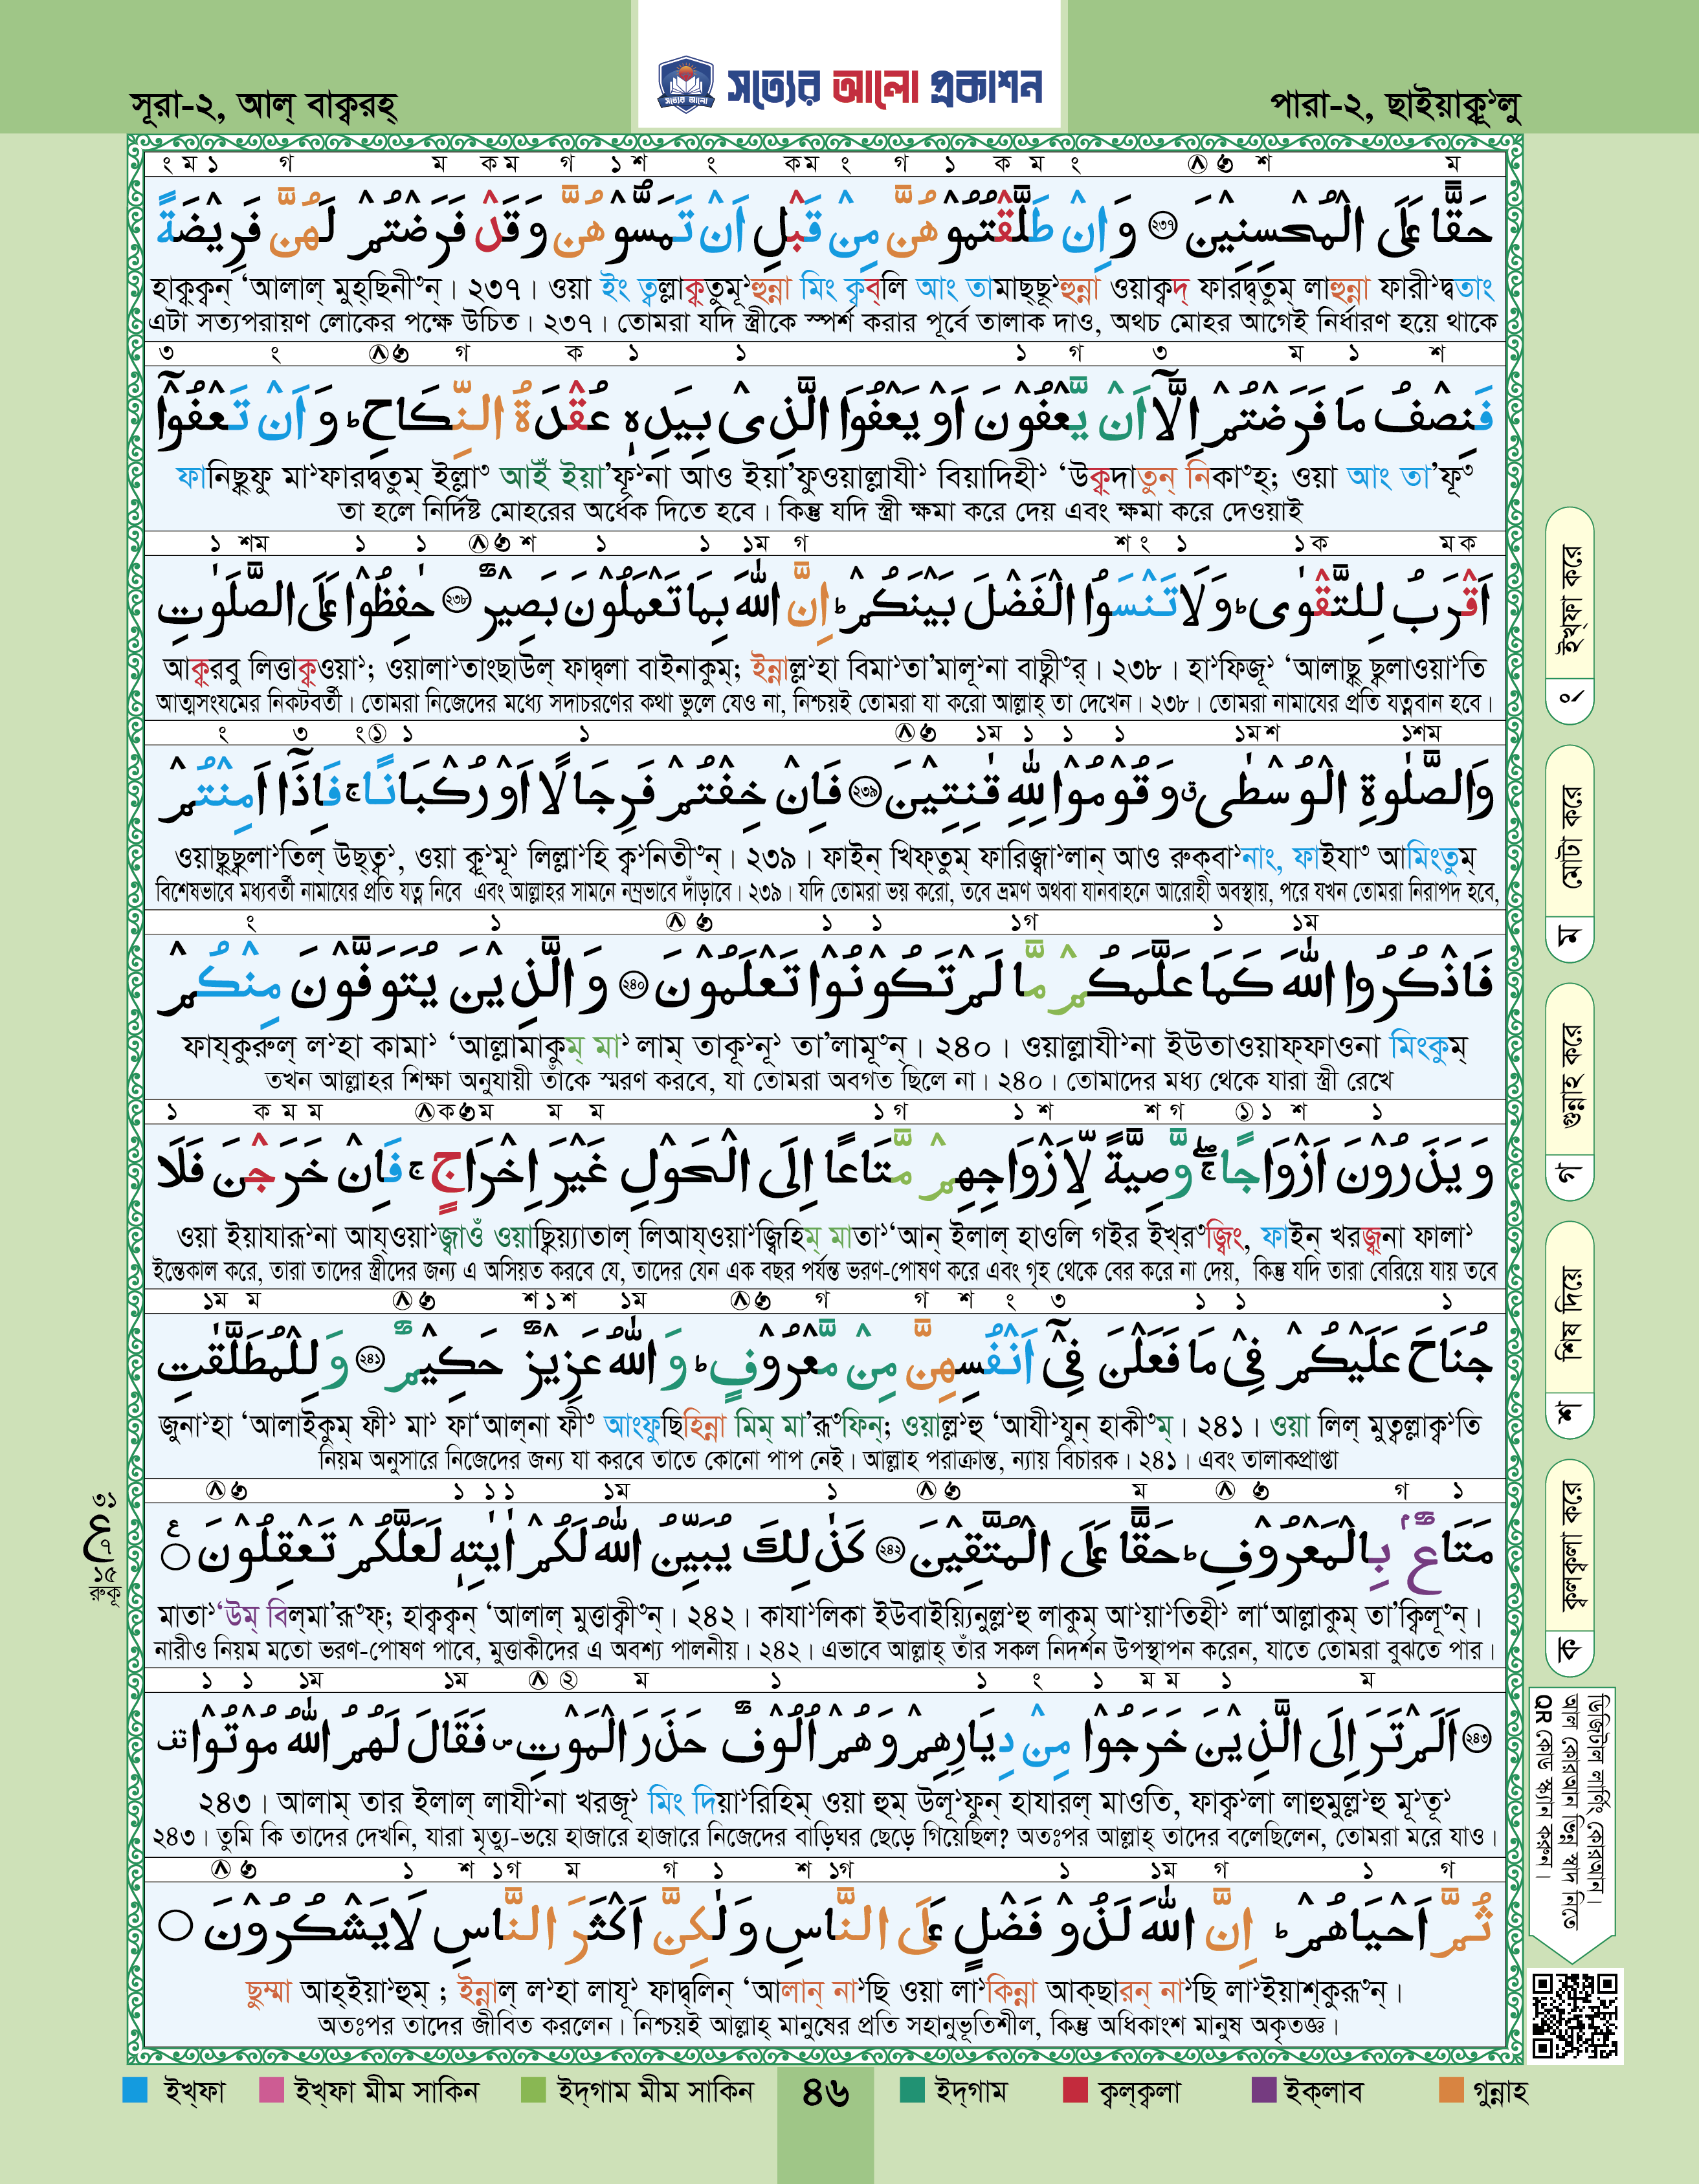 সত্যের আলো প্রকাশন
সত্যের আলো
সূরা-২, আল্ বাক্বরহ্
পারা-২, ছাইয়াক্বূ১লু
ং ম ১ গ ম ক ম গ ১ শ ং ক ম ং গ ১ ক ম ং ৩ শ ম
حَقًّا عَلَى الْمُحْسِنِيْنَ ۝٢٣٦ وَاِنْ طَلَّقْتُمُوْهُنَّ مِنْ قَبْلِ اَنْ تَمَسُّوْهُنَّ وَقَدْ فَرَضْتُمْ لَهُنَّ فَرِيْضَةً
হাক্বক্বন্ ‘আলাল্ মুহ্ছিনী৩ন্। ২৩৭। ওয়া ইং ত্বল্লাক্বতুমূ১হুন্না মিং ক্বব্লি আং তামাছ্ছূ১হুন্না ওয়াক্বদ্ ফারদ্বতুম্ লাহুন্না ফারী১দ্বতাং
এটা সত্যপরায়ণ লোকের পক্ষে উচিত। ২৩৭। তোমরা যদি স্ত্রীকে স্পর্শ করার পূর্বে তালাক দাও, অথচ মোহর আগেই নির্ধারণ হয়ে থাকে
৩ ং ৩ গ ক ১ ১ ১ গ ৩ ম ১ শ
فَنِصْفُ مَا فَرَضْتُمْ اِلَّاۤ اَنْ يَّعْفُوْنَ اَوْ يَعْفُوَا الَّذِىْ بِيَدِهٖ عُقْدَةُ النِّكَاحِ ؕ وَاَنْ تَعْفُوْۤا
ফানিছ্বফু মা১ফারদ্বতুম্ ইল্লা৩ আইঁ ইয়া’ফূ১না আও ইয়া’ফুওয়াল্লাযী১ বিয়াদিহী১ ‘উক্বদাতুন্ নিকা৩হ্; ওয়া আং তা’ফূ৩
তা হলে নির্দিষ্ট মোহরের অর্ধেক দিতে হবে। কিন্তু যদি স্ত্রী ক্ষমা করে দেয় এবং ক্ষমা করে দেওয়াই
১ শম ১ ১ ৩ শ ১ ১ ১ম গ শ ং ১ ১ ক ম ক
اَقْرَبُ لِلتَّقْوٰى ؕ وَلَا تَنْسَوُا الْفَضْلَ بَيْنَكُمْ ؕ اِنَّ اللّٰهَ بِمَا تَعْمَلُوْنَ بَصِيْرٌ ۝٢٣٨ حٰفِظُوْا عَلَى الصَّلَوٰتِ
আক্বরবু লিত্তাক্বওয়া১; ওয়ালা১তাংছাউল্ ফাদ্বলা বাইনাকুম্; ইন্নাল্ল১হা বিমা১তা’মালূ১না বাছ্বী৩র্। ২৩৮। হা১ফিজূ১ ‘আলাছ্ব ছ্বলাওয়া১তি
আত্মসংযমের নিকটবর্তী। তোমরা নিজেদের মধ্যে সদাচরণের কথা ভুলে যেও না, নিশ্চয়ই তোমরা যা করো আল্লাহ্ তা দেখেন। ২৩৮। তোমরা নামাযের প্রতি যত্নবান হবে।
ং ৩ ং ১ ১ ১ ৩ ১ম ১ ১ ১ ১ম শ ১শম
وَالصَّلٰوةِ الْوُسْطٰى ۗ وَقُوْمُوْا لِلّٰهِ قٰنِتِيْنَ ۝٢٣٩ فَاِنْ خِفْتُمْ فَرِجَالًا اَوْ رُكْبَانًا ۚ فَاِذَاۤ اَمِنْتُمْ
ওয়াছ্বছ্বলা১তিল্ উছ্ত্ব১, ওয়া ক্বূ১মূ১ লিল্লা১হি ক্ব১নিতী৩ন্। ২৩৯। ফাইন্ খিফ্তুম্ ফারিজ্বা১লান্ আও রুক্বা১নাং, ফাইযা৩ আমিংতুম্
বিশেষভাবে মধ্যবর্তী নামাযের প্রতি যত্ন নিবে এবং আল্লাহর সামনে নম্রভাবে দাঁড়াবে। ২৩৯। যদি তোমরা ভয় করো, তবে ভ্রমণ অথবা যানবাহনে আরোহী অবস্থায়, পরে যখন তোমরা নিরাপদ হবে,
ং ১ ৩ ১ ১ ১গ ১ ১ম
فَاذْكُرُوا اللّٰهَ كَمَا عَلَّمَكُمْ مَّا لَمْ تَكُوْنُوْا تَعْلَمُوْنَ ۝٢٤٠ وَالَّذِيْنَ يُتَوَفَّوْنَ مِنْكُمْ
ফায্কুরুল্ ল১হা কামা১ ‘আল্লামাকুম্ মা১ লাম্ তাকূ১নূ১ তা’লামূ৩ন্। ২৪০। ওয়াল্লাযী১না ইউতাওয়াফ্ফাওনা মিংকুম্
তখন আল্লাহর শিক্ষা অনুযায়ী তাঁকে স্মরণ করবে, যা তোমরা অবগত ছিলে না। ২৪০। তোমাদের মধ্য থেকে যারা স্ত্রী রেখে
১ ক ম ম ক ৩ ম ম ম ১ গ ১ শ শ গ ১ ১ শ ১
وَيَذَرُوْنَ اَزْوَاجًا ۚۖ وَّصِيَّةً لِّاَزْوَاجِهِمْ مَّتَاعًا اِلَى الْحَوْلِ غَيْرَ اِخْرَاجٍ ۚ فَاِنْ خَرَجْنَ فَلَا
ওয়া ইয়াযারূ১না আয্ওয়া১জ্বাওঁ ওয়াছ্বিয়্যাতাল্ লিআয্ওয়া১জ্বিহিম্ মাতা১‘আন্ ইলাল্ হাওলি গইর ইখ্র৩জ্বিং, ফাইন্ খরজ্বনা ফালা১
ইন্তেকাল করে, তারা তাদের স্ত্রীদের জন্য এ অসিয়ত করবে যে, তাদের যেন এক বছর পর্যন্ত ভরণ-পোষণ করে এবং গৃহ থেকে বের করে না দেয়, কিন্তু যদি তারা বেরিয়ে যায় তবে
১ম ম ৩ শ ১ শ ১ম ৩ গ গ শ ং ৩ ১ ১ ১
جُنَاحَ عَلَيْكُمْ فِىْ مَا فَعَلْنَ فِىْۤ اَنْفُسِهِنَّ مِنْ مَّعْرُوْفٍ ؕ وَاللّٰهُ عَزِيْزٌ حَكِيْمٌ ۝٢٤١ وَلِلْمُطَلَّقٰتِ
জুনা১হা ‘আলাইকুম্ ফী১ মা১ ফা‘আল্না ফী৩ আংফুছিহিন্না মিম্ মা’রূ৩ফিন্; ওয়াল্ল১হু ‘আযী১যুন্ হাকী৩ম্। ২৪১। ওয়া লিল্ মুত্বল্লাক্ব১তি
নিয়ম অনুসারে নিজেদের জন্য যা করবে তাতে কোনো পাপ নেই। আল্লাহ পরাক্রান্ত, ন্যায় বিচারক। ২৪১। এবং তালাকপ্রাপ্তা
৩ ১ ১ ১ ১ম ১ ৩ ম ৩ গ ১
مَتَاعٌۢ بِالْمَعْرُوْفِ ؕ حَقًّا عَلَى الْمُتَّقِيْنَ ۝٢٤٢ كَذٰلِكَ يُبَيِّنُ اللّٰهُ لَكُمْ اٰيٰتِهٖ لَعَلَّكُمْ تَعْقِلُوْنَ
মাতা১‘উম্ বিল্মা’রূ৩ফ্; হাক্বক্বন্ ‘আলাল্ মুত্তাক্বী৩ন্। ২৪২। কাযা১লিকা ইউবাইয়্যিনুল্ল১হু লাকুম্ আ১য়া১তিহী১ লা‘আল্লাকুম্ তা’ক্বিলূ৩ন্।
নারীও নিয়ম মতো ভরণ-পোষণ পাবে, মুত্তাকীদের এ অবশ্য পালনীয়। ২৪২। এভাবে আল্লাহ্ তাঁর সকল নিদর্শন উপস্থাপন করেন, যাতে তোমরা বুঝতে পার।
১ ১ ১ম ১ম ২ ম ১ ১ ং ১ ম ম ১ ম
۝٢٤٣ اَلَمْ تَرَ اِلَى الَّذِيْنَ خَرَجُوْا مِنْ دِيَارِهِمْ وَهُمْ اُلُوْفٌ حَذَرَ الْمَوْتِ ص فَقَالَ لَهُمُ اللّٰهُ مُوْتُوْا قف
২৪৩। আলাম্ তার ইলাল্ লাযী১না খরজূ১ মিং দিয়া১রিহিম্ ওয়া হুম্ উলূ১ফুন্ হাযারল্ মাওতি, ফাক্ব১লা লাহুমুল্ল১হু মূ১তূ১
২৪৩। তুমি কি তাদের দেখনি, যারা মৃত্যু-ভয়ে হাজারে হাজারে নিজেদের বাড়িঘর ছেড়ে গিয়েছিল? অতঃপর আল্লাহ্ তাদের বলেছিলেন, তোমরা মরে যাও।
৩ ১ শ ১গ ম গ ১ শ ১গ ১ ১ম গ ১ গ
ثُمَّ اَحْيَاهُمْ ؕ اِنَّ اللّٰهَ لَذُوْ فَضْلٍ عَلَى النَّاسِ وَلٰكِنَّ اَكْثَرَ النَّاسِ لَا يَشْكُرُوْنَ
ছুম্মা আহ্ইয়া১হুম্ ; ইন্নাল্ ল১হা লাযূ১ ফাদ্বলিন্ ‘আলান্ না১ছি ওয়া লা১কিন্না আক্ছারন্ না১ছি লা১ইয়াশ্কুরূ৩ন্।
অতঃপর তাদের জীবিত করলেন। নিশ্চয়ই আল্লাহ্ মানুষের প্রতি সহানুভূতিশীল, কিন্তু অধিকাংশ মানুষ অকৃতজ্ঞ।
৩১
ع
৭
১৫
রুকূ
ং ইখ্ফা করে
ম মোটা করে
গ গুন্নাহ করে
শ শিষ দিয়ে
ক ক্বলক্বলা করে
ডিজিটাল লার্নিং কোরআন।
আল কোরআন ভিন্ন স্বাদ নিতে
QR কোড স্ক্যান করুন।
ইখ্ফা
ইখ্ফা মীম সাকিন
ইদ্গাম মীম সাকিন
৪৬
ইদ্গাম
ক্বল্ক্বলা
ইক্লাব
গুন্নাহ